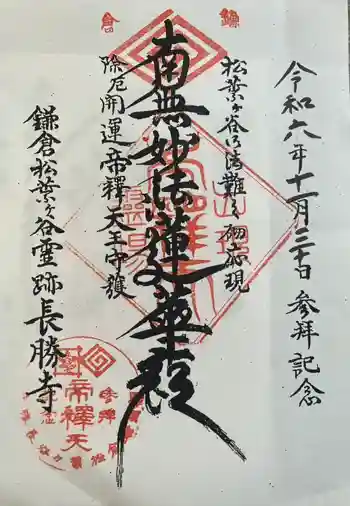 鎌倉
令和六年十一月三十日 参拝記念
松葉ヶ谷御法難之砌示現
南無妙法蓮華経
除厄開運帝釋天王守護
鎌倉松葉ヶ谷霊跡長勝寺
参拝
帝釋天